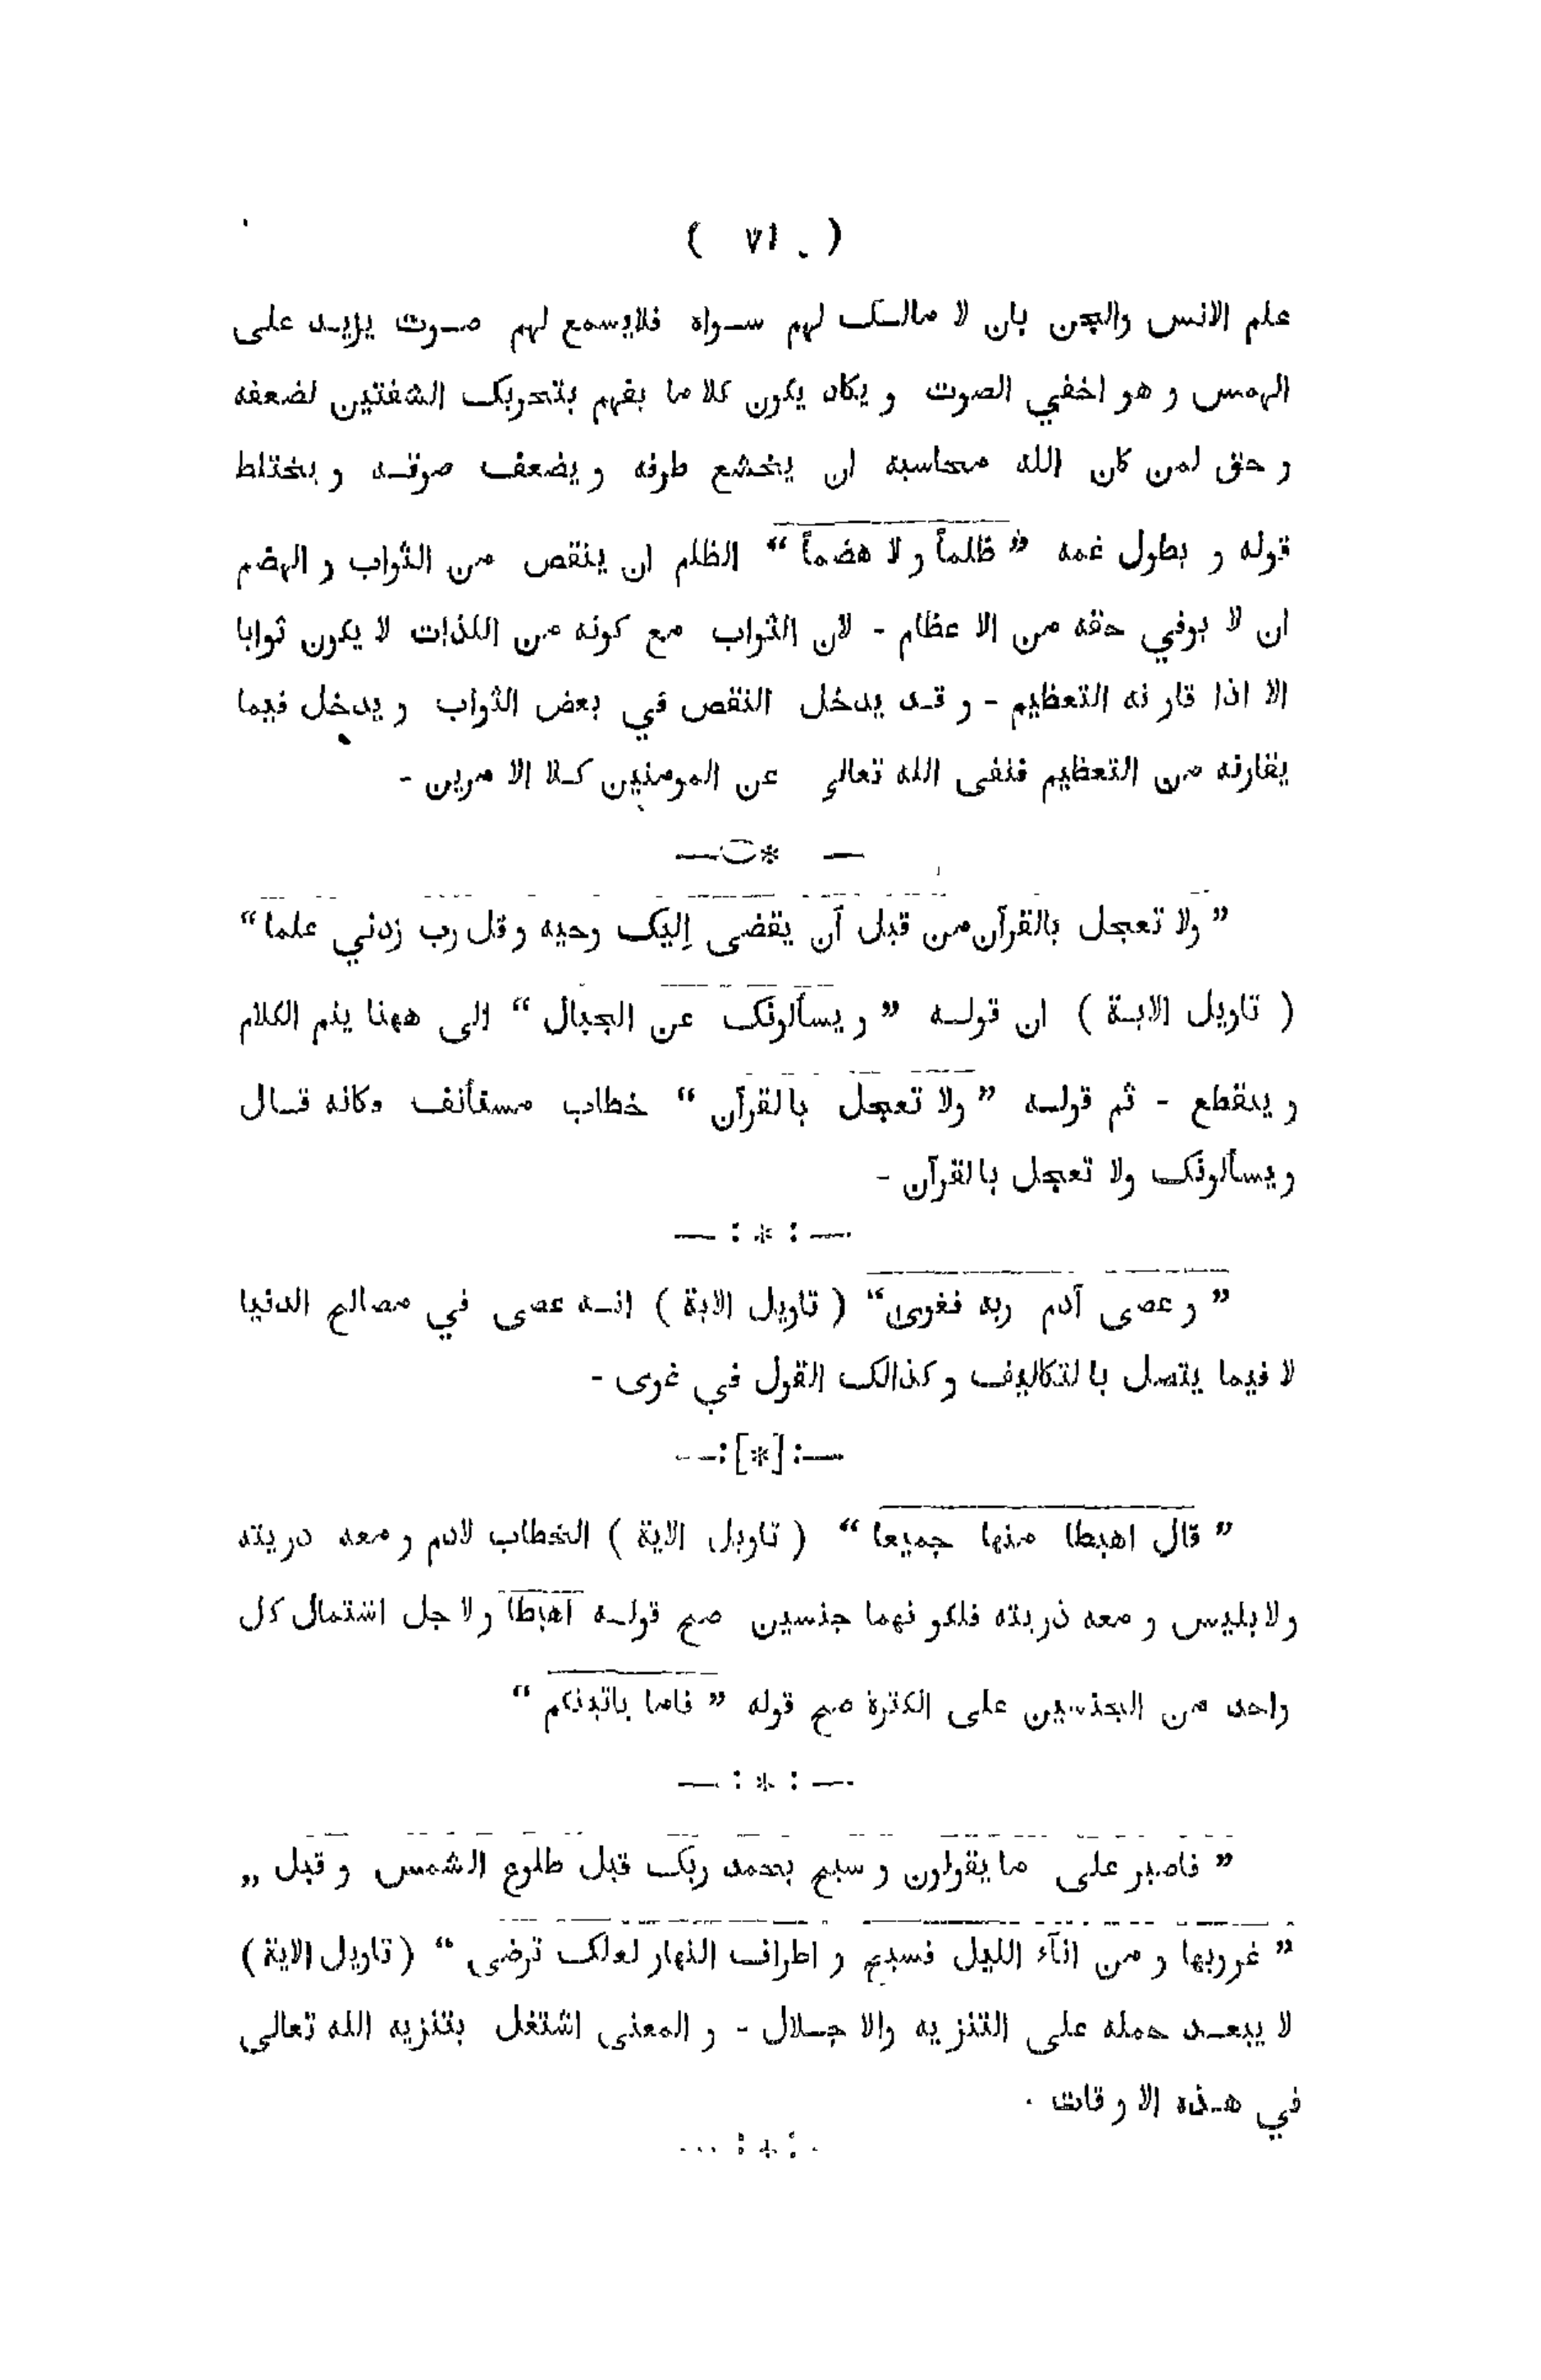 ( ٧١ )
علم الانس والجن بان لا مالك لهم سواه فلايسمع لهم صوت يزيد على
الهمس و هو اخفي الصوت و يكاد يكون كلا ما يفهم بتحريك الشفتين لضعفه
و حق لمن كان الله محاسبه ان يخشع طرفه و يضعف صوته و يختلط
قوله و يطول غمه ” ظلماً و لا هضماً “ الظلم ان ينقص من الثواب و الهضم
ان لا يوفي حقه من الا عظام - لان الثواب مع كونه من اللذات لا يكون ثوابا
الا اذا قار نه التعظيم - و قد يدخل النقص في بعض الثواب و يدخل فيما
يقارنه من التعظيم فنفى الله تعالى عن المومنين كلا الا مرين -
— * —
” ولا تعجل بالقرآن من قبل أن يقضى إليك وحيه و قل رب زدني علما “
( تاويل الاية ) ان قوله ” و يسألونك عن الجبال “ الى ههنا يتم الكلام
و ينقطع - ثم قوله ” ولا تعجل بالقرآن “ خطاب مستأنف وكانه قال
و يسألونك ولا تعجل بالقرآن -
— : * : —
” و عصى آدم ربه فغوى “ ( تاويل الاية ) انه عصى في مصالح الدنيا
لا فيما يتصل با لتكاليف و كذالك القول في غوى -
—:[*]:—
” قال اهبطا منها جميعا “ ( تاويل الاية ) الخطاب لادم و معه دريته
ولا بليس و معه ذريته فلكو نهما جنسين صح قوله اهبطا و لا جل اشتمال كل
واحد من الجنسين على الكثرة صح قوله ” فاما ياتينكم “
— : * : —
” فاصبر على ما يقولون و سبح بحمد ربك قبل طلوع الشمس و قبل „
” غروبها و من انآء الليل فسبح و اطراف النهار لعلك ترضى “ ( تاويل الاية )
لا يبعد حمله على التنز يه والا جلال - و المعنى اشتغل بتنزيه الله تعالى
في هذه الا و قات .